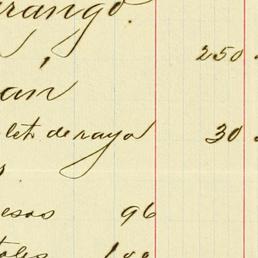 rango.
250
án
let de raya 30
esos 96